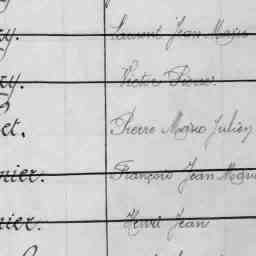 y. Laurent Jean Marie
y. Victor Pierre
et. Pierre Marie Julien
nier. François Jean Marie
nier. Henri Jean